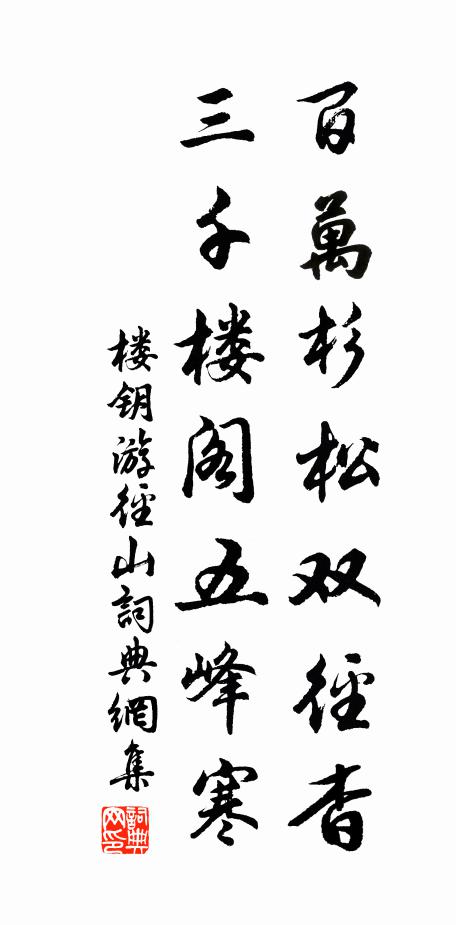 百萬杉松双徑杳
三千楼阁五峰寒
楼钥游徑山詞典網集
詞典
网印